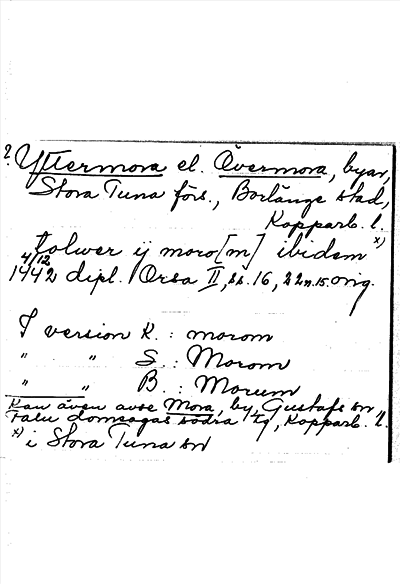 ? Yttermora el. Övermora, byar,
Stora Tuna förs., Borlänge stad,
Kopparb. l.
tolwer ij moro[m] ibidem x)
4/12 1442 dipl. Orsa II, s. 16, 22 n. 15. orig.
I version K. : morom
" " S. : Morom
" " B. : Morum
Kan även avse Mora, by, Gustafs sn
Falu domsagas södra tg, Kopparb. l.
x) i Stora Tuna sn